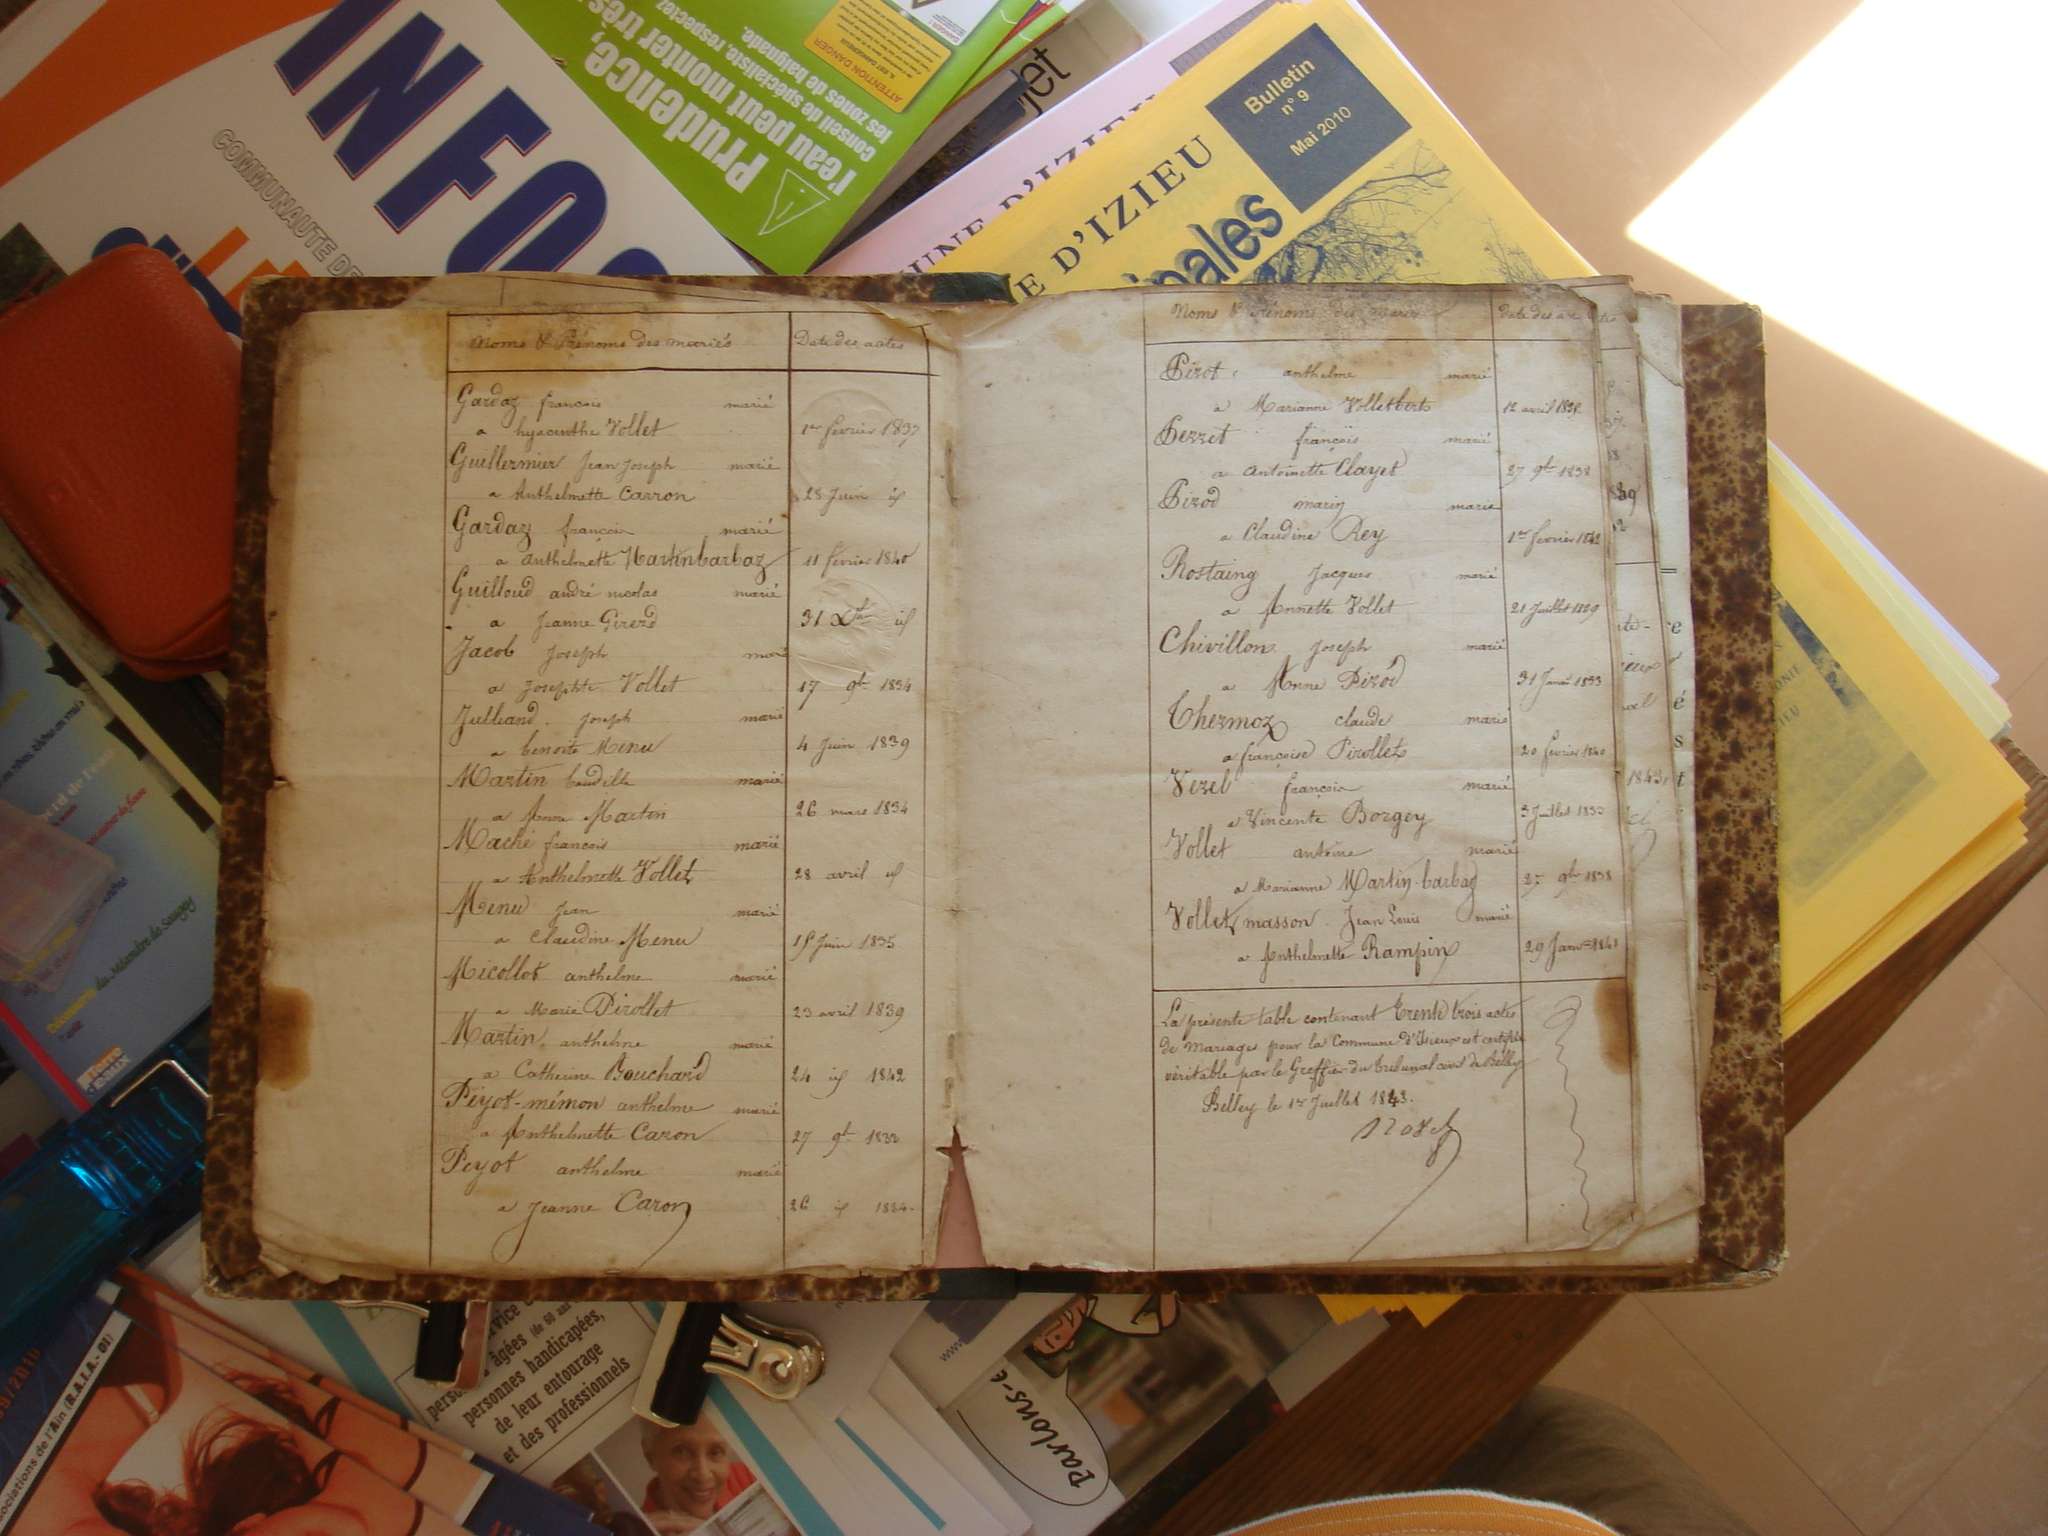 INFOS
COMMUNAUTE DE
Prudence,
l'eau peut monter très
conseil de spécialiste, respectez
les zones de baignade.
ATTENTION DANGER
jet
UNE D'IZIEU
E D'IZIEU
Bulletin
n° 9
Mai 2010
ipales
Noms & Prénoms des mariés
Date des actes
Gardaz françois marié
a hyacinthe Vollet 1er février 1837
Guillermier Jean Joseph marié
a Anthelmette Carron 28 Juin id
Gardaz françois marié
a Anthelmette Martinbarbaz 11 février 1840
Guilloud andré nicolas marié
a Jeanne Girerd 31 Xbre id
Jacob Joseph marié
a Josephte Vollet 17 9b 1834
Julliand Joseph marié
a benoite Menu 4 Juin 1839
Martin baudille marié
a Anne Martin 26 mars 1834
Maché françois marié
a Anthelmette Vollet 28 avril id
Menu Jean marié
a Claudine Menu 15 Juin 1835
Micollot anthelme marié
a Marie Pirollet 23 avril 1839
Martin anthelme marié
a Catherine Bouchard 24 id 1842
Peyot-mémon anthelme marié
a Anthelmette Caron 27 9b 1832
Peyot anthelme marié
a Jeanne Caron 26 id 1834
Noms & Prénoms des mariés
Date des actes
Pirot anthelme marié
a Marianne Volletberts 12 avril
Perret françois marié
a Antoinette Clayet 27 9b 1838
Pirod marin marié
a Claudine Rey 1er février 1842
Rostaing Jacques marié
a Annette Vollet 21 Juillet 1839
Chivillon Joseph marié
a Anne Pirod 31 Janv 1833
Thermoz claude marié
a françoise Pirollet 20 février 1840
Verel françois marié
a Vincente Borgey 3 Juillet 1833
Vollet antoine marié
a Marianne Martin-barbaz 9b 1838
Vollet masson Jean Louis marié
a Anthelmette Rampin 29 Janv 1841
La présente table contenant trente trois actes
de Mariages pour la Commune d'Izieux est certifiée
véritable par le Greffier du tribunal civil de Belley
Belley le 1er Juillet 1843.
1843
personnes âgées (de 60 ans
personnes handicapées,
de leur entourage
et des professionnels
sociations de l'Ain (B.A.I.A.- 01)
www.
Parlons-e